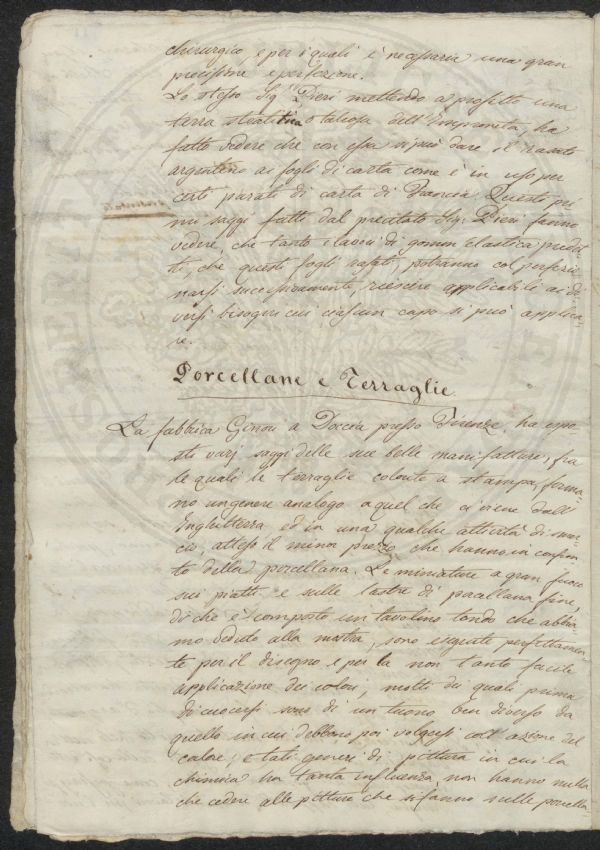 chirurgico, e per i quali è necessaria una gran
precisione e perfezione.
Lo stesso Sig.r Pieri mettendo a profitto una
terra steatitica o talcosa dell'Impruneta, ha
fatto vedere che con essa si può dare il rasato
argentino ai fogli di carta come è in uso per
certi parati di carta di Francia. Questi pri
mi saggi fatti dal precitato Sig. Pieri fanno
vedere, che tanto i lavori di gomma elastica
che questi fogli rasati, potranno col perfezio
narsi successivamente, riescire applicabili ai di
versi bisogni cui ciascun capo si può applica
re.
Porcellane e Terraglie.
La fabbrica Ginori a Doccia presso Firenze, ha espo
sti varj saggi delle sue belle manifatture, fra
le quali le terraglie colorite a stampa, forma
no un genere analogo a quel che ci viene dall'
Inghilterra ed in una qualche attività di smer
cio, atteso il minor prezzo che hanno in confron
to della porcellana. Le miniature a gran fuoco
sui piatti e sulle lastre di porcellana fine,
di che è composto un tavolino tondo che abbia
mo veduto alla mostra, sono eseguite perfettamen
te per il disegno e per la non tanto facile
applicazione dei colori, molti dei quali prima
di cuocersi sono di un tuono ben diverso da
quello in cui debbono poi volgersi coll'azione del
calore; e tali generi di pittura in cui la
chimica ha tanta influenza, non hanno nulla
che cedere alle pitture che si fanno sulle porcella